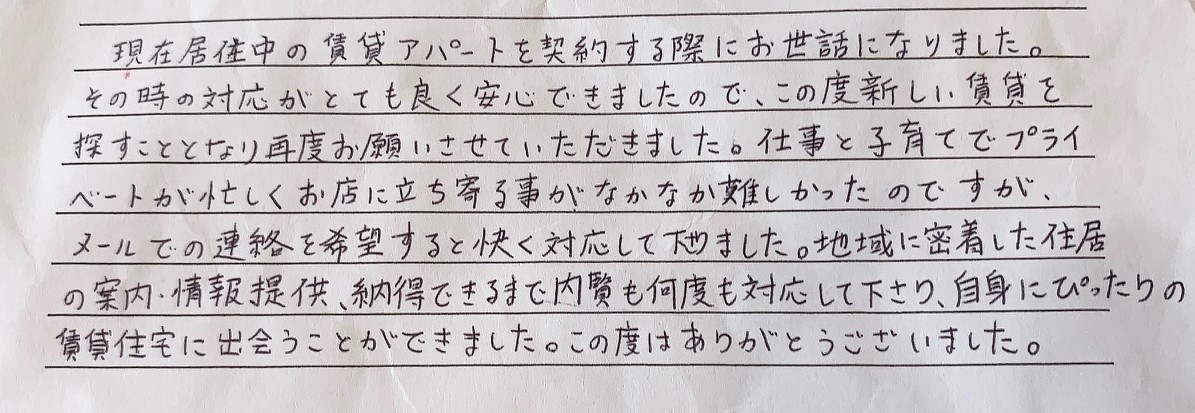 現在居住中の賃貸アパートを契約する際にお世話になりました。
その時の対応がとても良く安心できましたので、この度新しい賃貸を
探すこととなり再度お願いさせていただきました。仕事と子育てでプライ
ベートが忙しくお店に立ち寄る事がなかなか難しかったのですが、
メールでの連絡を希望すると快く対応して下さりました。地域に密着した住居
の案内・情報提供、納得できるまで内覧も何度も対応して下さり、自身にぴったりの
賃貸住宅に出会うことができました。この度はありがとうございました。